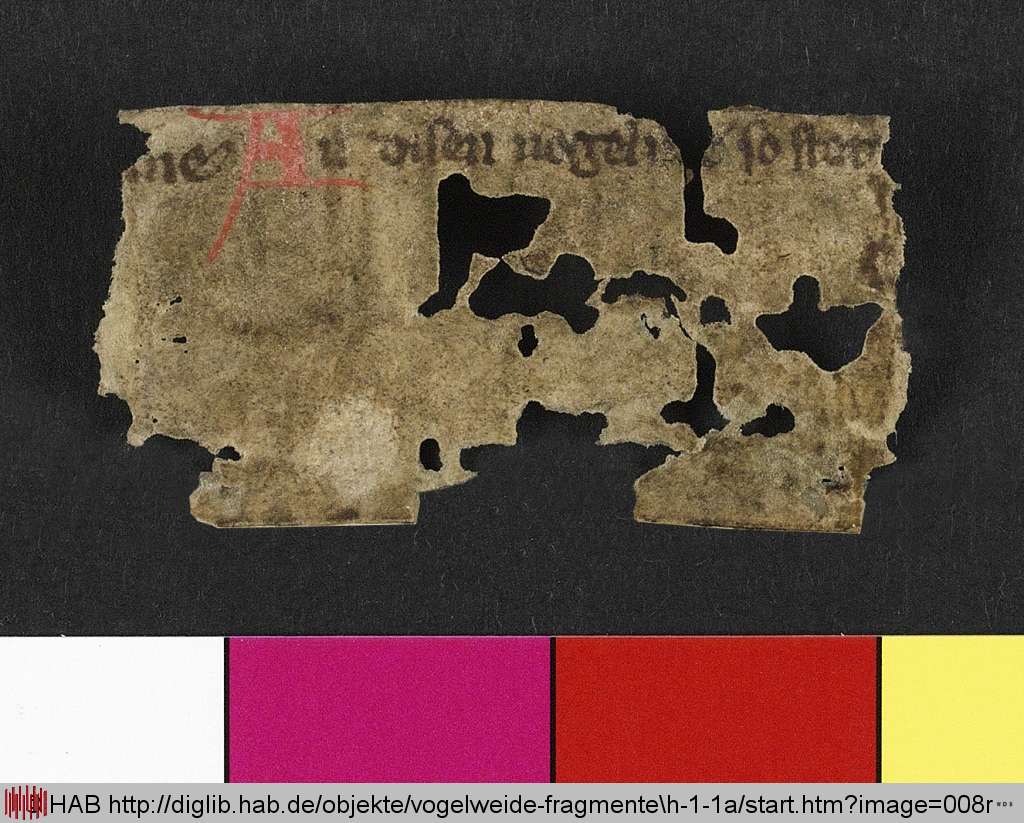 An disen uogeli so stet
HAB http://diglib.hab.de/objekte/vogelweide-fragmente\h-1-1a/start.htm?image=008r